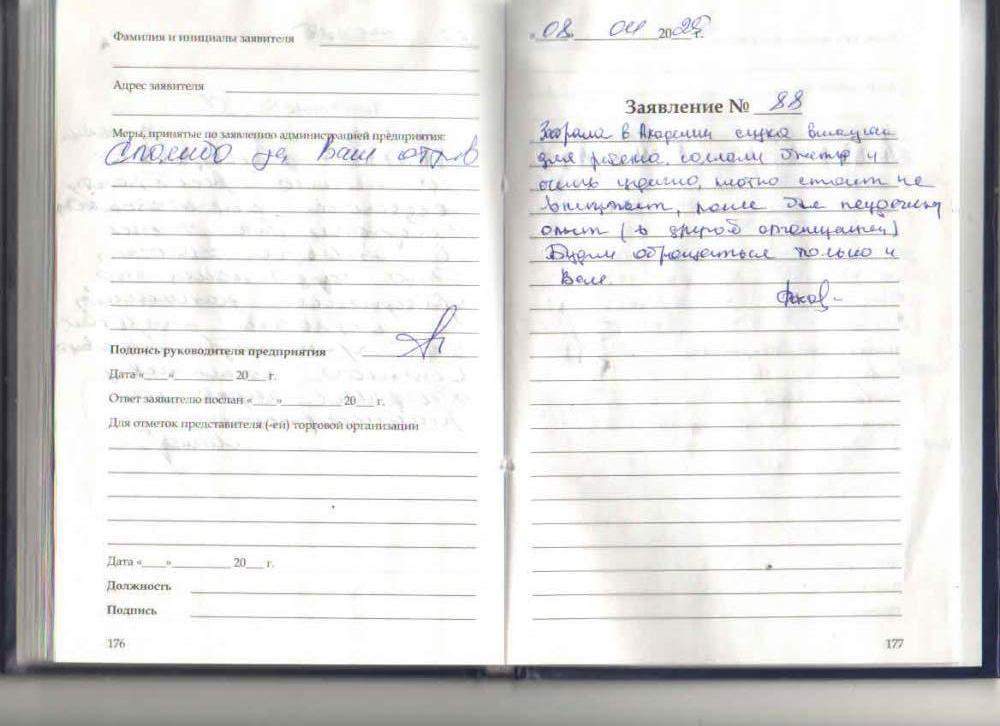 Фамилия и инициалы заявителя
Адрес заявителя
Меры, принятые по заявлению администрацией предприятия:
Спасибо за Ваш отзыв
Подпись руководителя предприятия
Дата «___» ________ 20__ г.
Ответ заявителю послан «___» ________ 20__ г.
Для отметок представителя (-ей) торговой организации
Дата «___» ________ 20__ г.
Должность
Подпись
176
«08 04 2025 г.
Заявление № 88
Забрала в Академии слуха вкладыш
для ребенка, сделали быстро и
очень удачно, плотно стоит не
выпадает, ранее был неудачный
опыт (в другой организации)
Будем обращаться только к
Вам.
177